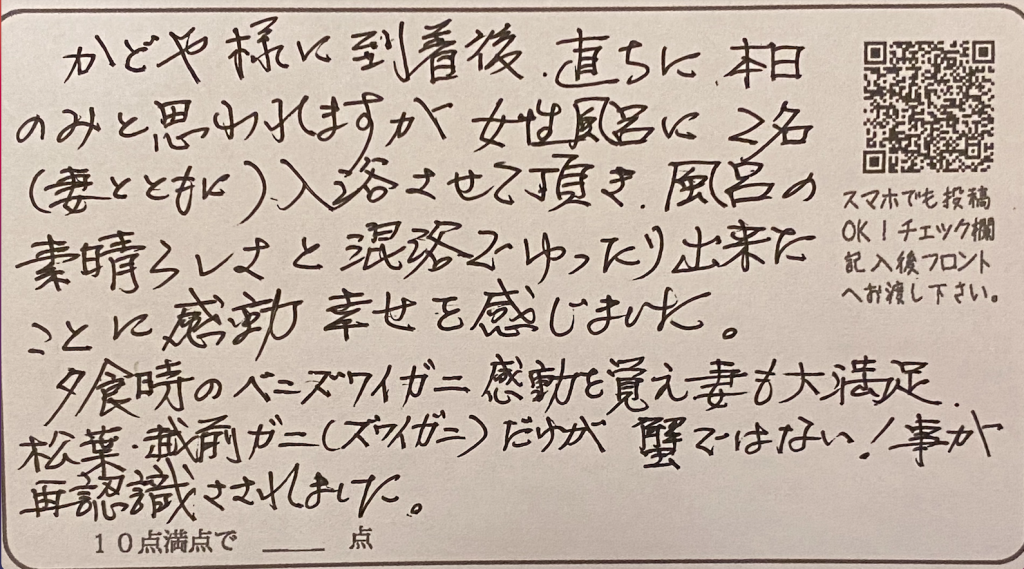 かどや様に到着後、直ちに本日
のみと思われますが女性風呂に2名
(妻とともに)入浴させて頂き、風呂の
素晴らしさと混浴でゆったり出来た
ことに感動 幸せを感じました。
夕食時のベニズワイガニ感動を覚え妻も大満足、
松葉・越前ガニ(ズワイガニ)だけが 蟹ではない!事が
再認識さされました。
10点満点で ___ 点
スマホでも投稿
OK!チェック欄
記入後フロント
へお渡し下さい。